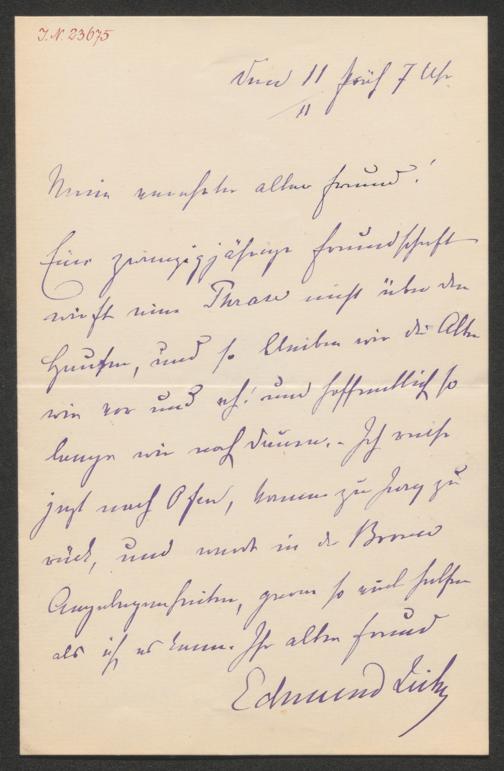 I.N. 23675
den 11/11 früh 7 Uhr
Mein verehrter alter Freund!
Eine zwanzigjährige Freundschaft
wirft eine Phrase nicht über den
Haufen, und so bleiben wir die Alten
wie vor und eh! und hoffentlich so
lange wir noch dauern. - Ich reise
jezt nach Ofen, komme zu
rück, und werde in der
Angelegenheiten, gerne so viel helfen
als ich es kann. Ihr alter Freund
Edmund Zichy